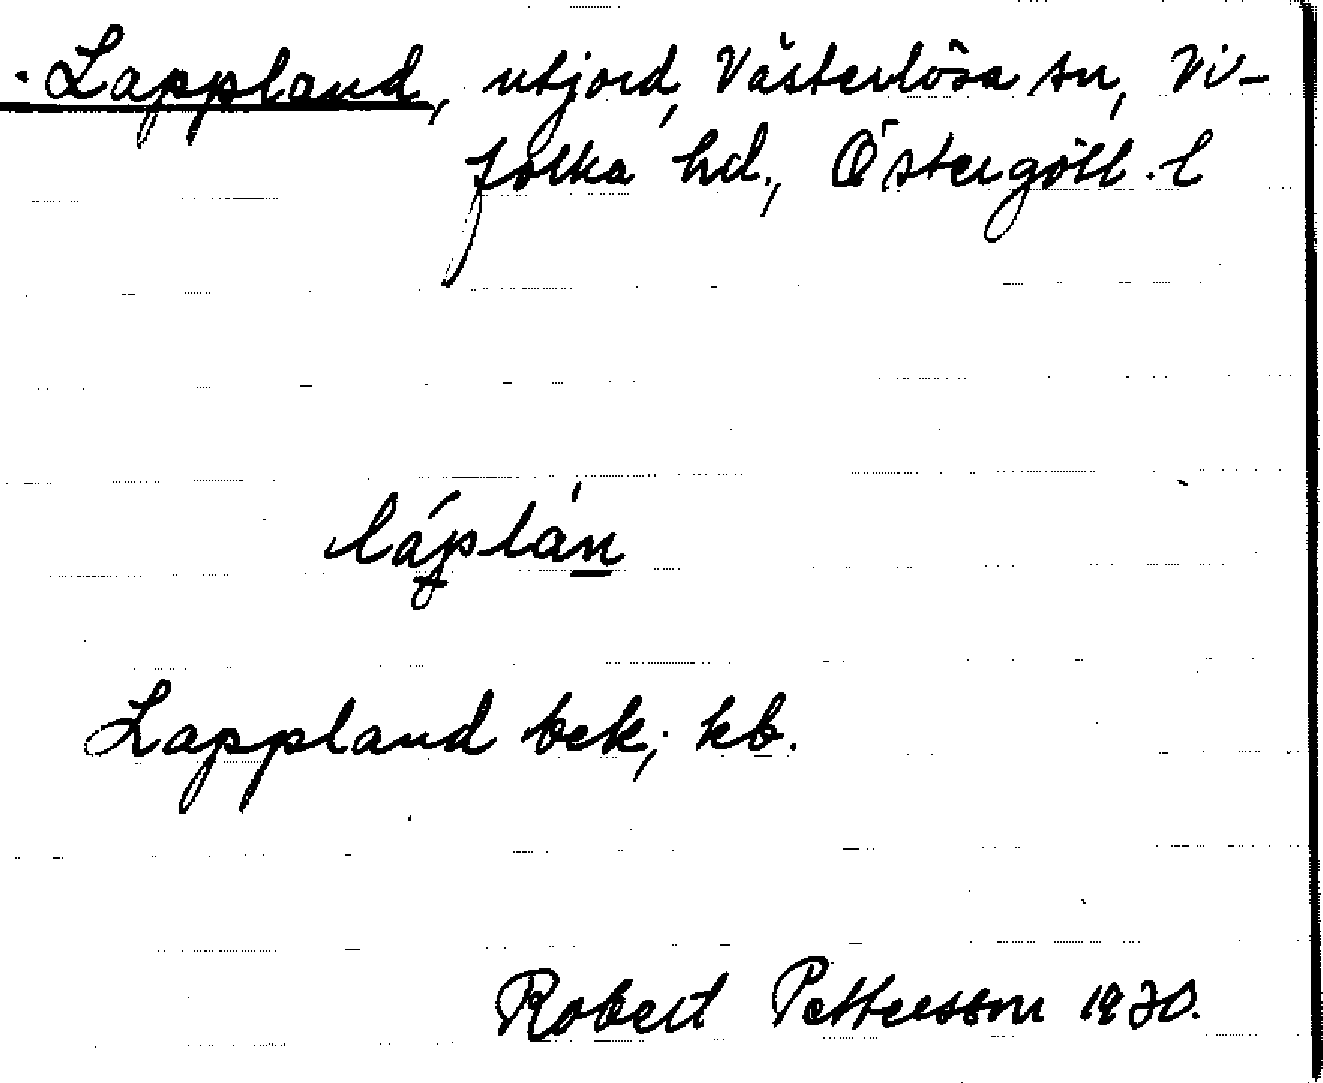 Lappland, utjord, Västerlösa sn, Vi-
folka hd., Östergötl. l
Lappland bek; kb.
Robert Pettersson 1930.